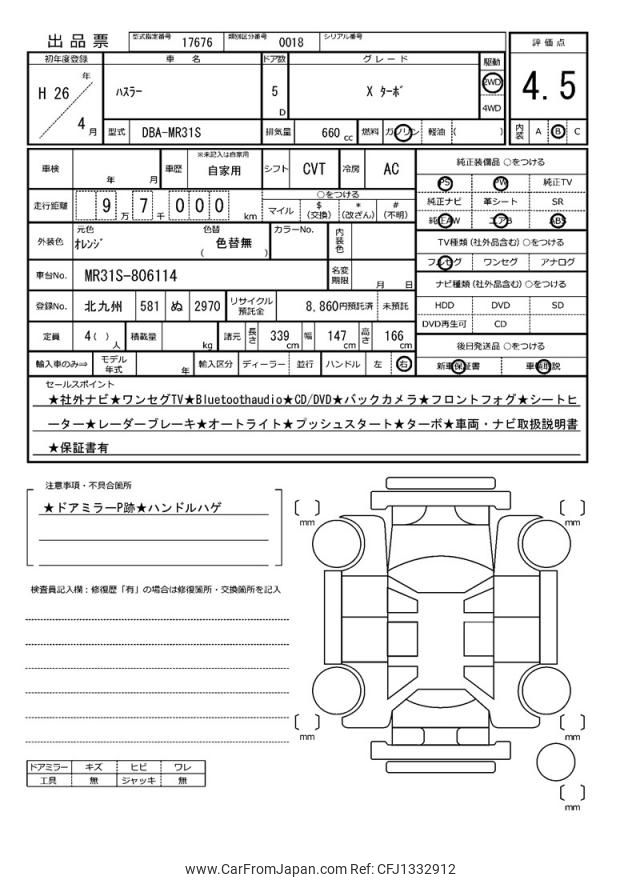 出品票 型式指定番号 17676 類別区分番号 0018 シリアル番号
評価点
初年度登録 車名 ドア数 グレード 駆動
H 26 年 4 月 ハスラー 5 D X ターボ 2WD 4WD
4.5
型式 DBA-MR31S 排気量 660 cc 燃料 ガソリン 軽油 ( )
内装 A B C
車検 年 月 車歴 ※未記入は自家用 自家用 シフト CVT 冷房 AC
純正装備品 ○をつける
PS PW 純正TV
走行距離 9 万 7 千 0 0 0 km
○をつける
マイル $ (交換) * (改ざん) # (不明)
純正ナビ 革シート SR
純正AW エアB ABS
外装色 元色 オレンジ 色替 色替無 ( ) カラーNo. 内装色
TV種類 (社外品含む) ○をつける
フルセグ ワンセグ アナログ
車台No. MR31S-806114 名変期限 月 日
ナビ種類 (社外品含む) ○をつける
HDD DVD SD
DVD再生可 CD
登録No. 北九州 581 ぬ 2970 リサイクル預託金 8,860円預託済 未預託
定員 4( ) 人 積載量 kg 諸元 長さ 339 cm 幅 147 cm 高さ 166 cm
後日発送品 ○をつける
新車保証書 車輌取説
輸入車のみ⇒ モデル年式 年 輸入区分 ディーラー 並行 ハンドル 左 右
セールスポイント
★社外ナビ★ワンセグTV★Bluetoothaudio★CD/DVD★バックカメラ★フロントフォグ★シートヒ
ーター★レーダーブレーキ★オートライト★プッシュスタート★ターボ★車両・ナビ取扱説明書
★保証書有
注意事項・不具合箇所
★ドアミラーP跡★ハンドルハゲ
検査員記入欄：修復歴「有」の場合は修復箇所・交換箇所を記入
[ ] mm
[ ] mm
[ ] mm
[ ] mm
[ ] mm
ドアミラー キズ ヒビ ワレ
工具 無 ジャッキ 無
www.CarFromJapan.com Ref: CFJ1332912